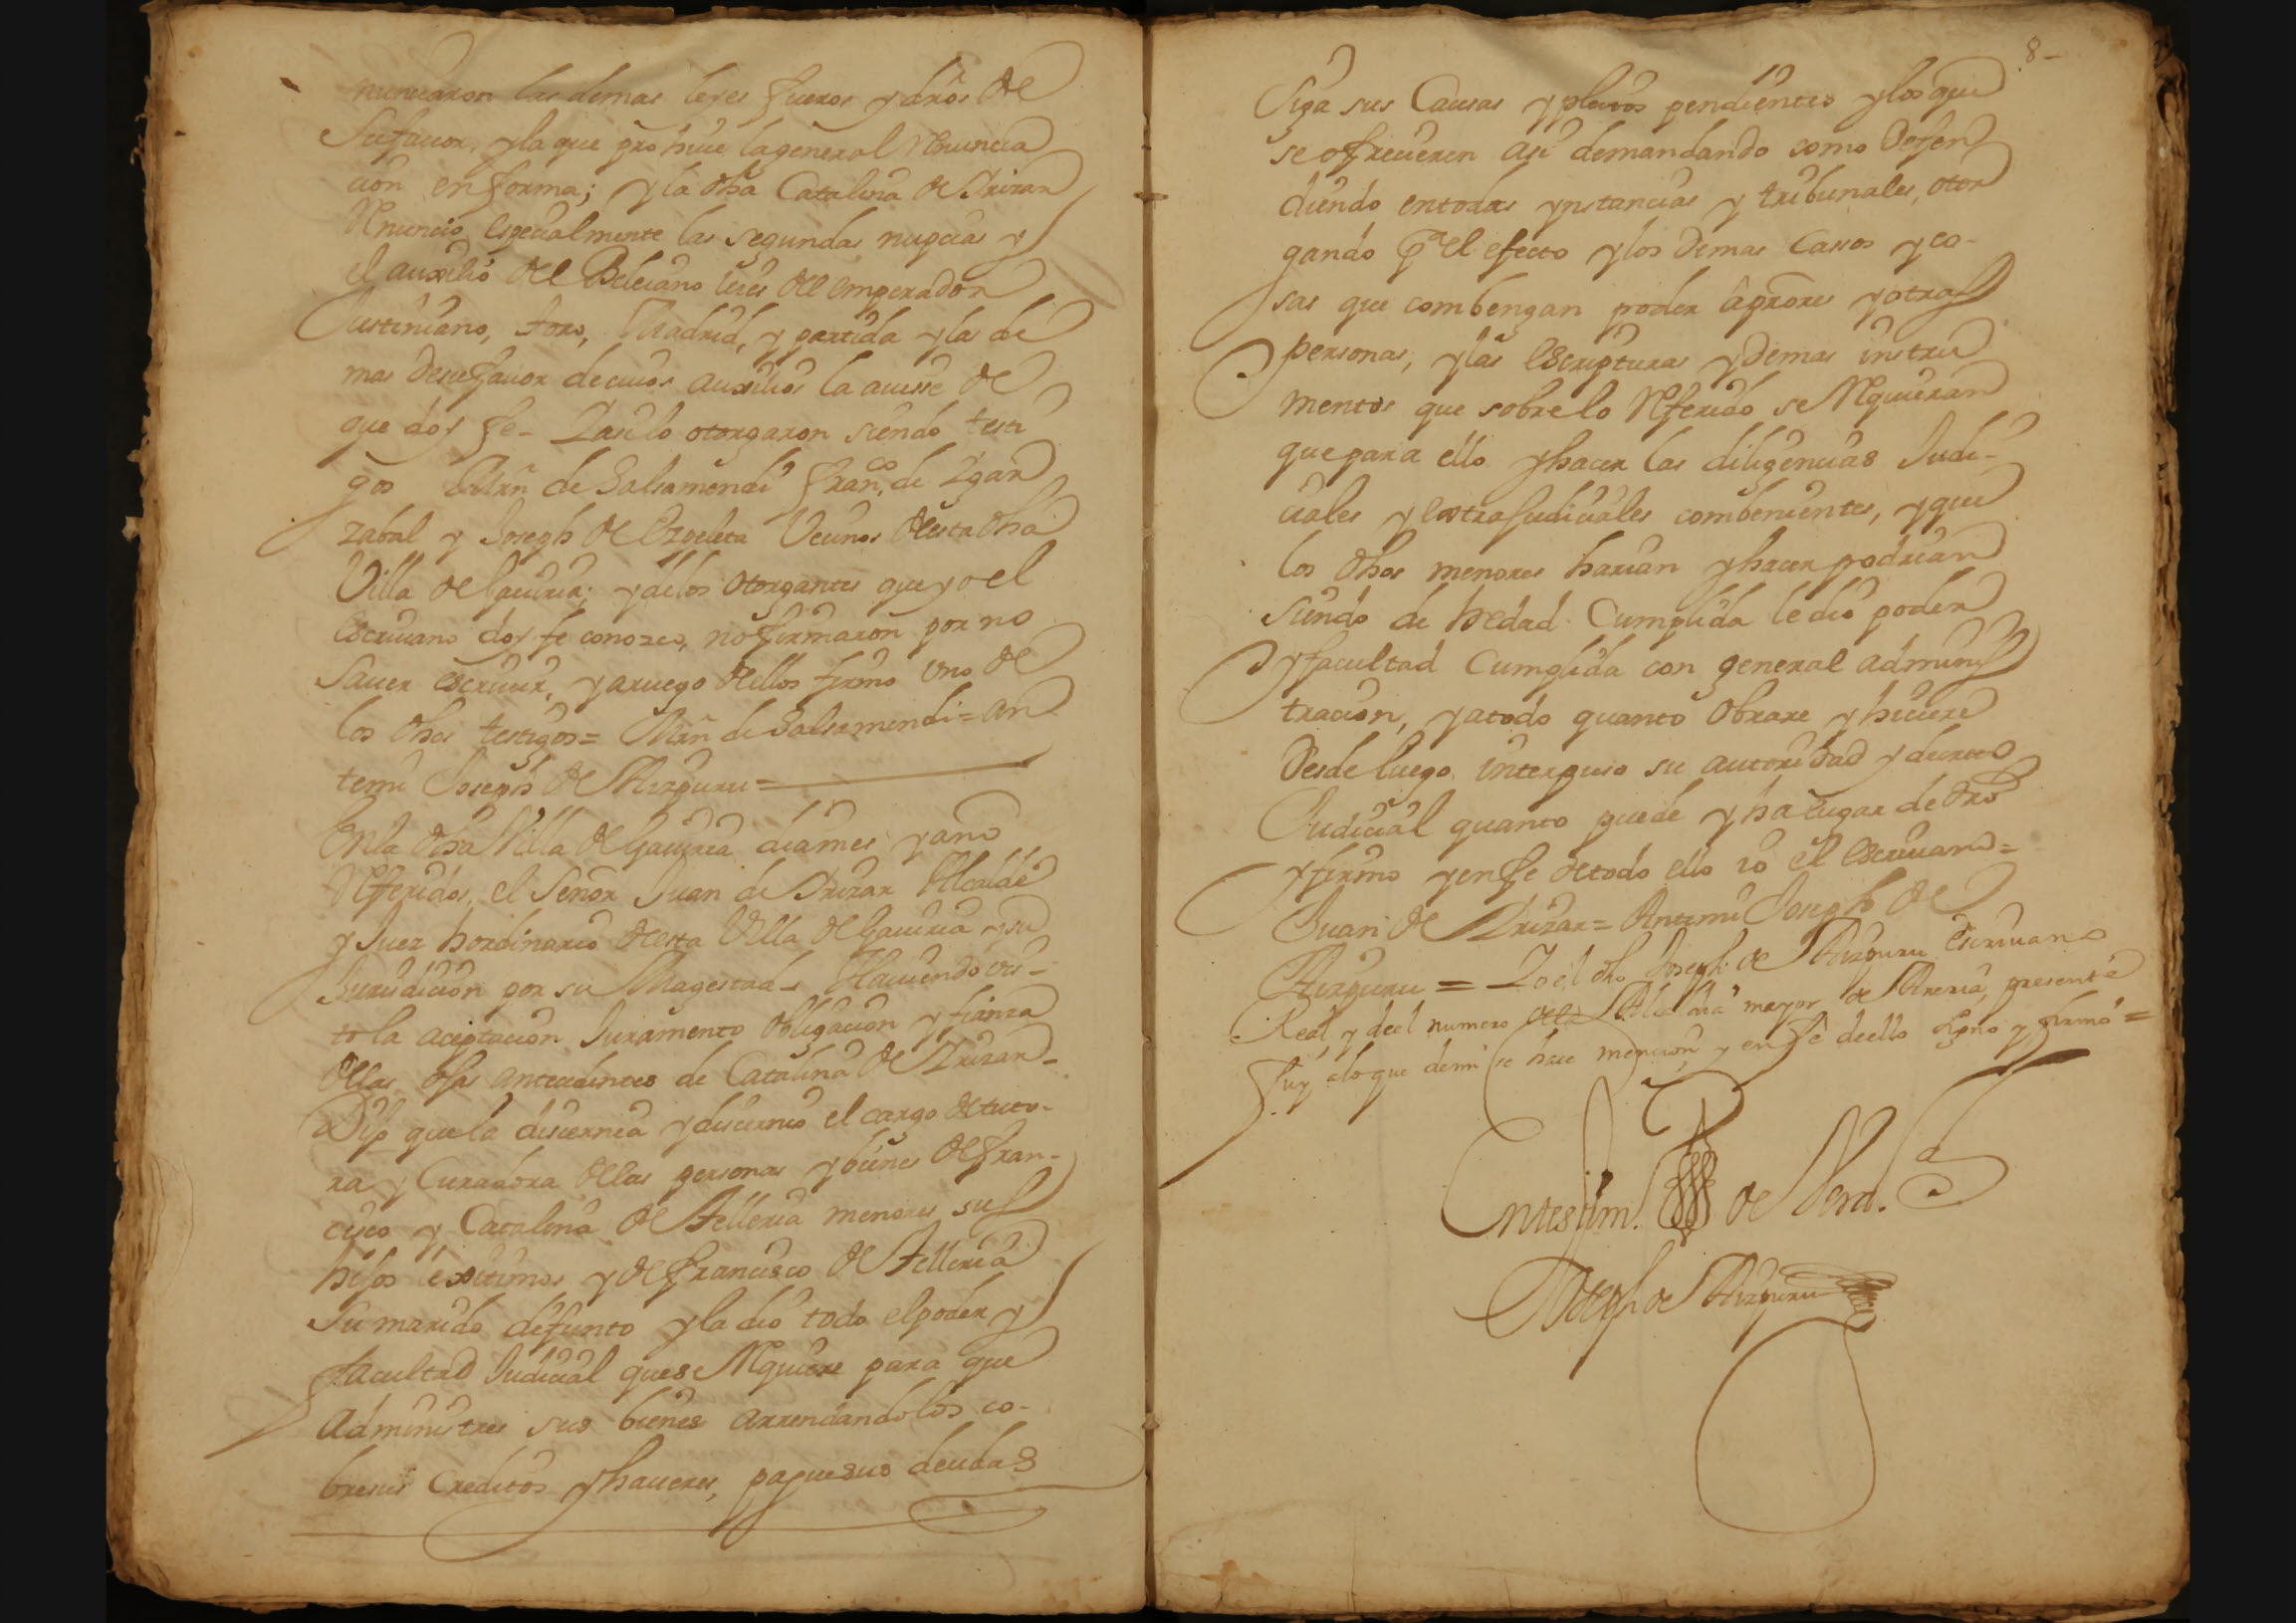 nunciaron las demas leyes fueros y dros de
su fauor, y la que prohiue la general Renuncia
cion en forma; y la dha Catalina de Irizar
Renuncio especialmente las segundas nupcias y
el auxilio del Beleiano leies del emperador
Justiniano, toro, Madrid, y partida y las de
mas de su fauor de cuios auxilios la auisse de
que doy fe - I asi lo otorgaron siendo testi
gos Mrn de Salsamendi Franco de Igar
zabal y Joseph de Ezpeleta Vecinos de esta dha
Villa de Gauiria; y a los otorgantes que yo el
escriuano doy fe conozco, no firmaron por no
sauer escriuir, y a ruego de ellos firmo uno de
los dhos testigos = Mrn de Salsamendi = an
temi Joseph de Aizpuru =
En la dha Villa de Gauiria dia mes y año
Referidos, el Señor Juan de Irizar Alcalde
y Juez hordinario de esta Villa de Gauiria y su
Jurisdicion por su Magestad - Hauiendo vis-
to la aceptacion Juramento obligacion y fianza
de las ofas antecedentes de Catalina de Irizar -
Dijo que la discernia y discernio el cargo de tuto-
ra y Curadora de las personas y bienes de Fran-
cisco y Catalina de Telleria menores sus
hijos lexitimos y de Francisco de Telleria
su marido defunto y la dio todo el poder y
facultad Judicial que se Requiere para que
Administre sus bienes arrendandolos co-
bre sus Creditos y haueres, pague sus deudas
8-
Siga sus Causas y pleitos pendientes y los que
se ofrecieren asi demandando como defen
diendo en todas ynstancias y tribunales, otor
gando pa el efecto y los demas Casos y co-
sas que combengan poder a prores y otras
personas, y las escripturas y demas instru
mentos que sobre lo Referido se Requieran
que para ello y hacer las diligencias Judi-
ciales y extrajudiciales combenientes, y que
los dhos menores harian y hacer podrian
siendo de hedad Cumplida le dio poder
y facultad Cumplida con general adminis
tracion, y a todo quanto obrare y hiciere
desde luego interpuso su autoridad y decreto
Judicial quanto puede y ha lugar de dro
y firmo y en fe de todo ello io el escriuano =
Juan de Irizar = Antemi Joseph de
Aizpuru = Io el dho Joseph de Aizpuru escriuano
Real y de el numero de la Alcaldia mayor de Areria, presente
fuy a lo que de mi se hace mencion, y en fe de ello signo y firmo =
En testim. de Verd.
Joseph de Aizpuru